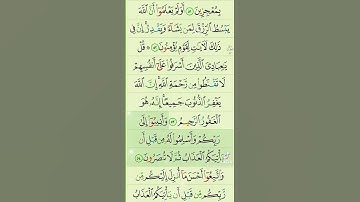 بِمُعْجِزِينَ ۝٥١ أَوَلَمْ يَعْلَمُوٓا۟ أَنَّ ٱللَّهَ
يَبْسُطُ ٱلرِّزْقَ لِمَن يَشَآءُ وَيَقْدِرُ ۚ إِنَّ فِى
ذَٰلِكَ لَـَٔايَـٰتٍ لِّقَوْمٍ يُؤْمِنُونَ ۝٥٢ ۞ قُلْ
يَـٰعِبَادِىَ ٱلَّذِينَ أَسْرَفُوا۟ عَلَىٰٓ أَنفُسِهِمْ
لَا تَقْنَطُوا۟ مِن رَّحْمَةِ ٱللَّهِ ۚ إِنَّ ٱللَّهَ
يَغْفِرُ ٱلذُّنُوبَ جَمِيعًا ۚ إِنَّهُۥ هُوَ
ٱلْغَفُورُ ٱلرَّحِيمُ ۝٥٣ وَأَنِيبُوٓا۟ إِلَىٰ
رَبِّكُمْ وَأَسْلِمُوا۟ لَهُۥ مِن قَبْلِ أَن
يَأْتِيَكُمُ ٱلْعَذَابُ ثُمَّ لَا تُنصَرُونَ ۝٥٤
وَٱتَّبِعُوٓا۟ أَحْسَنَ مَآ أُنزِلَ إِلَيْكُم مِّن
رَّبِّكُم مِّن قَبْلِ أَن يَأْتِيَكُمُ ٱلْعَذَابُ